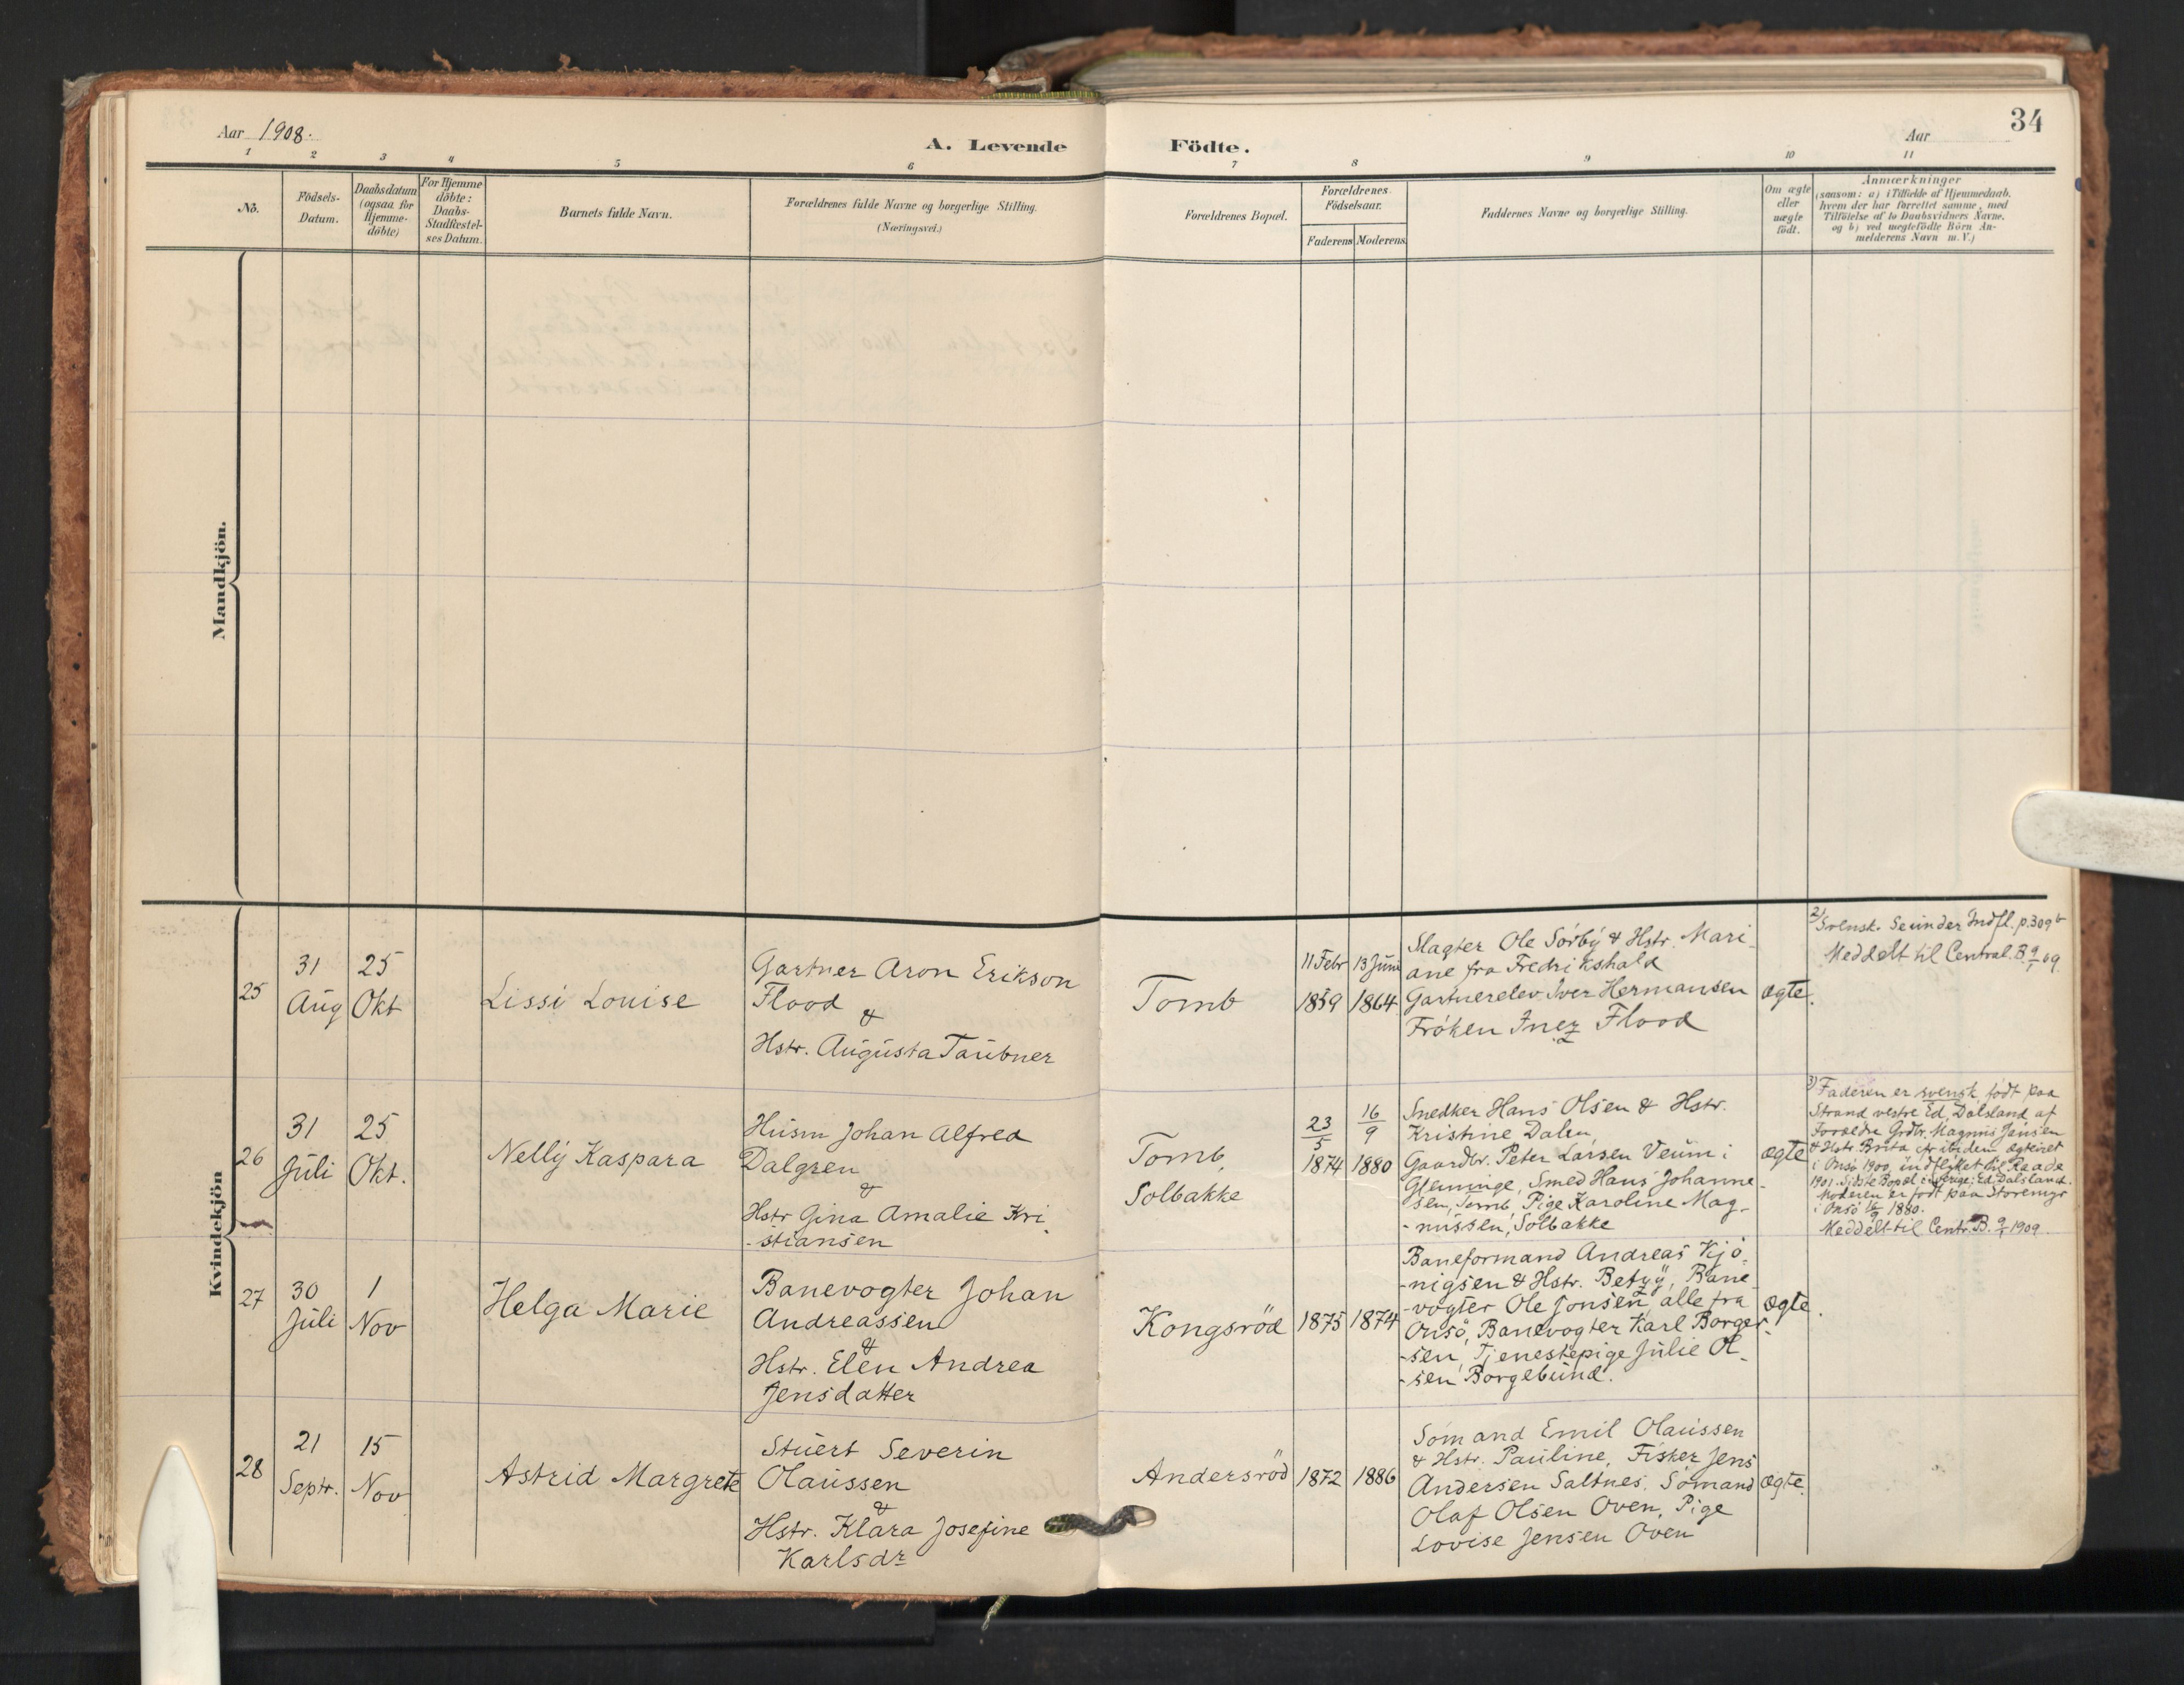 Aar 1908.
A. Levende Födte.
Aar
34
1 2 3 4 5 6 7 8 9 10 11
No.
Födsels-
Datum.
Daabsdatum
(ogsaa for
Hjemme-
döbte)
For Hjemme
döbte:
Daabs-
Stadfæstel-
ses Datum.
Barnets fulde Navn.
Forældrenes fulde Navne og borgerlige Stilling.
(Næringsvei.)
Forældrenes Bopæl.
Forældrenes
Födselsaar.
Faderens Moderens
Faddernes Navne og borgerlige Stilling.
Om ægte
eller
uægte
födt.
Anmærkninger
(saasom: a) i Tilfælde af Hjemmedaab,
hvem der har forrettet samme, med
Tilföielse af to Daabsvidners Navne,
og b) ved uægtefödte Börn An-
melderens Navn m.V.)
Mandkjön.
Kvindekjön
25
31
Aug
25
Okt
Lissi Louise
Gartner Aron Erikson
Flood
&
Hstr. Augusta Taubner
Tomb
11 Febr
1859
13 Juni
1864
Slagter Ole Sörby & Hstr. Mari-
ane fra Fredrikshald
Gartnerelev Iver Hermansen
Fröken Inez Flood
ægte.
2) Svensk. Se under Indfl. p. 309 b
Meddelt til Central. B. 9/1 09
26
31
Juli
25
Okt.
Nelly Kaspara
Husm Johan Alfred
Dalgren
&
Hstr Gina Amalie Kri
-stiansen
Tomb,
Solbakke
23/5
1874
16/9
1880
Snedker Hans Olsen & Hstr.
Kristine Dalen
Gaardbr. Peter Larsen Veum i
Glemminge, Smed Hans Johanne-
sen, Tomb, Pige Karoline Mag-
-nussen, Solbakke
ægte
3) Faderen er svensk födt paa
Strand vestre Ed, Dalsland af
Forældre Grdbr. Magnus Jansen
& Hstr. Brita ibidem ægteviet
i Onsö 1900, indflyttet til Raade
1901. Sidste Bopæl i Sverige: Ed Dalsland.
Moderen er födt paa Storemyr
i Onsö 16/9 1880.
Meddelt til Centr. B. 9/1 1909.
27
30
Juli
1
Nov
Helga Marie
Banevogter Johan
Andreassen
&
Hstr. Elen Andrea
Jensdatter
Kongsröd
1875
1874
Baneformand Andreas Kjö-
-nigsen & Hstr. Betzy, Bane-
-vogter Ole Jonsen, alle fra
Onsö, Banevogter Karl Borger-
-sen, Tjenestepige Julie Ol-
-sen Borgebund.
ægte.
28
21
Septr.
15
Nov
Astrid Margrete
Stuert Severin
Olaussen
&
Hstr. Klara Josefine
Karlsdr
Andersröd
1872
1886
Sömand Emil Olaussen
& Hstr. Pauline, Fisker Jens
Andersen Saltnes, Sömand
Olaf Olsen Oven, Pige
Lovise Jensen Oven
ægte.